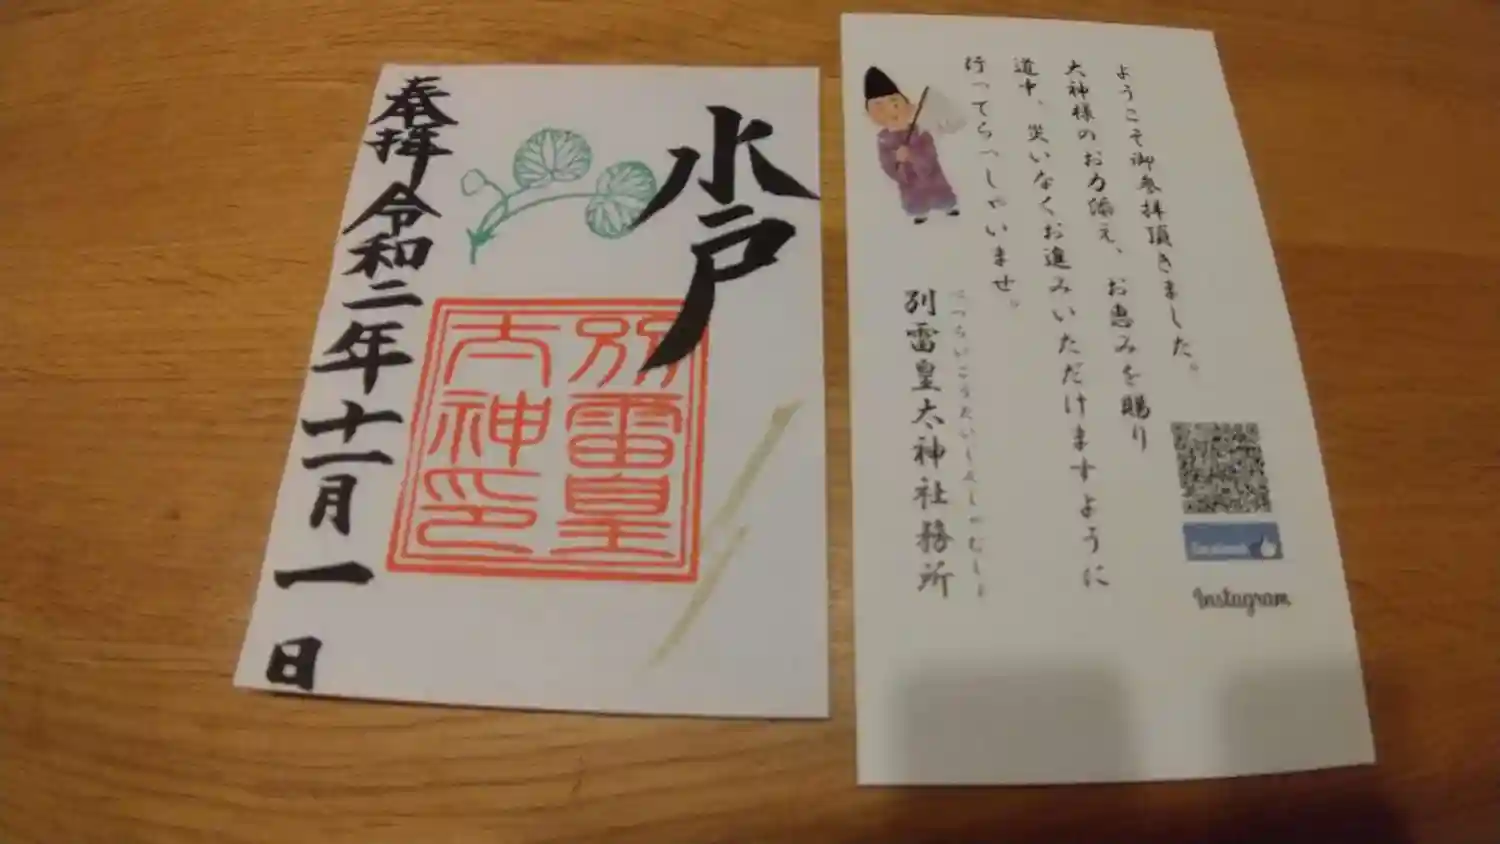 水戸
別雷皇
大神印
奉拝 令和二年十一月一日
ようこそ御参拝頂きました。
大神様のお力添え、お恵みを賜り
道中、災いなくお進みいただけますように
行ってらっしゃいませ。
べつらいこうたいじんしゃむしょ
別雷皇太神社務所
facebook
Instagram